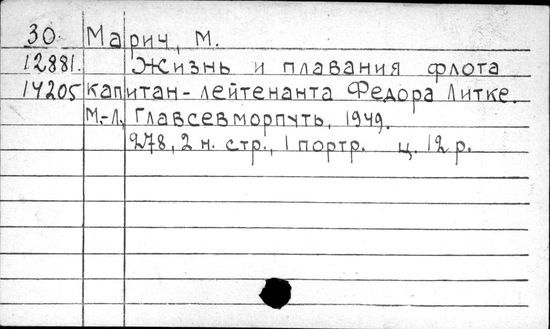 30 Марич, М.
12881. Жизнь и плавания флота
14205 капитан-лейтенанта Федора Литке.
М.-Л., Главсевморпуть, 1949.
278, 2 н. стр., 1 портр. ц. 12 р.